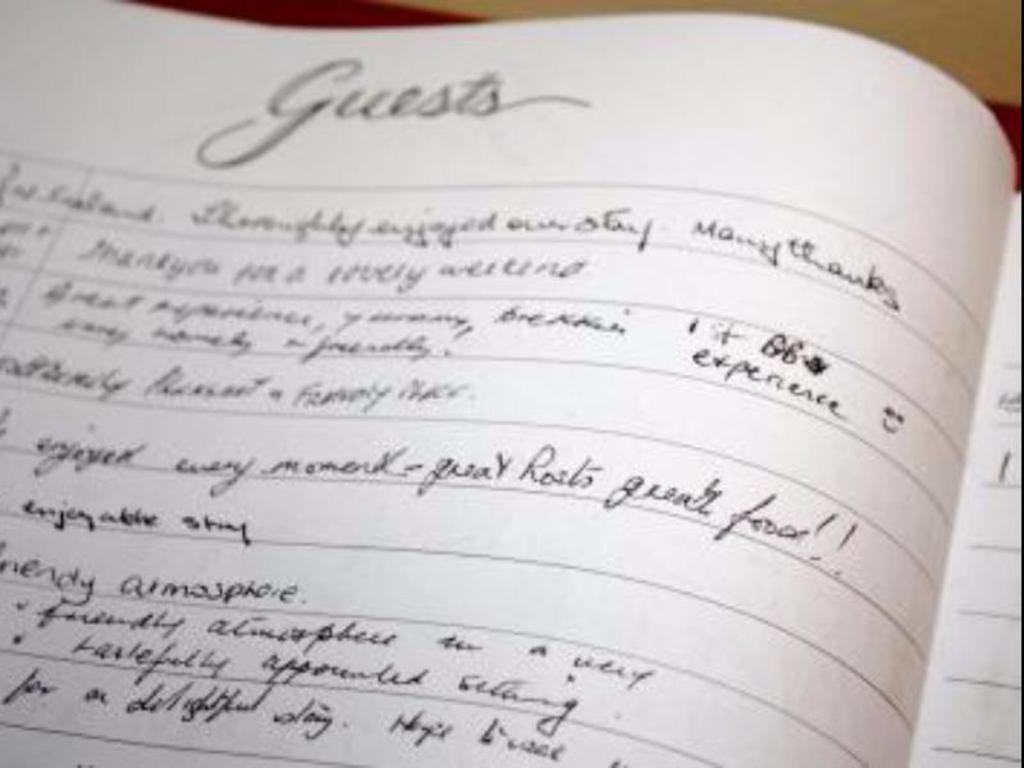 Guests
Thoroughly enjoyed our stay. Many thanks
Thankyou for a lovely weekend
Great experience, yummy brekkie
very homely & friendly.
experience
enjoyed every moment - great hosts great food!!
enjoyable stay
atmosphere.
Friendly atmosphere in a very
tastefully appointed setting.
for a delightful stay. Hope to